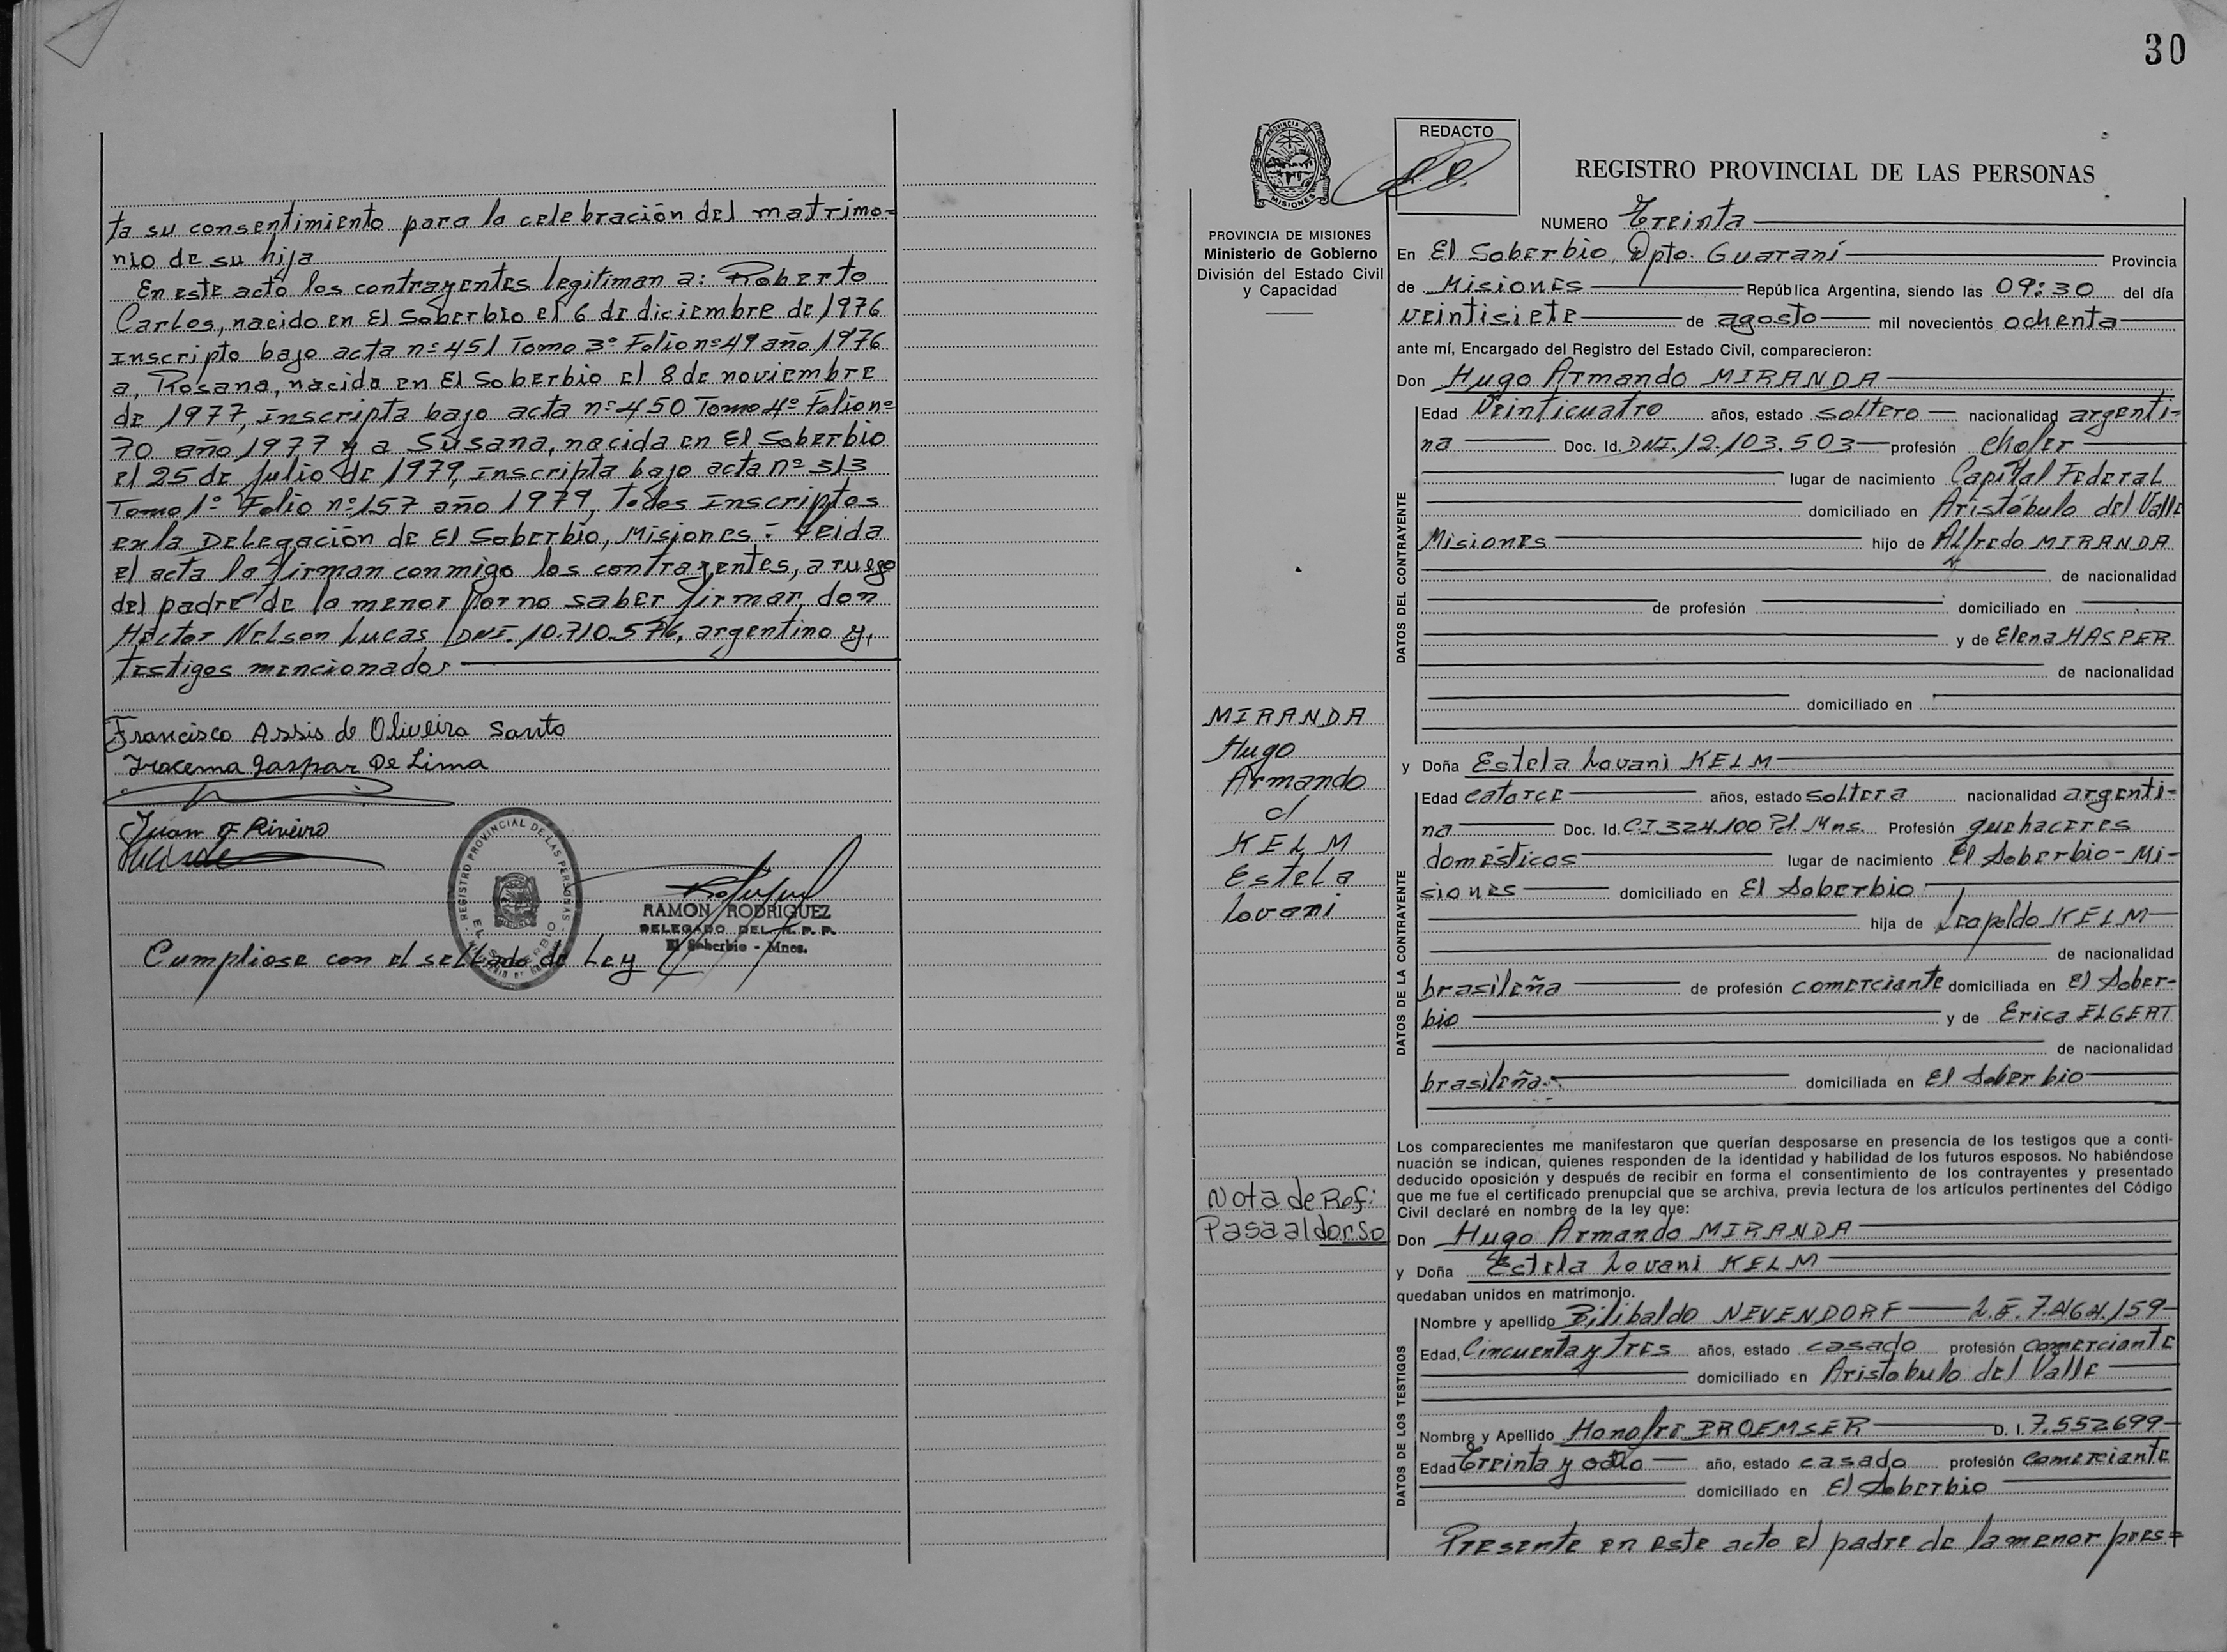 ta su consentimiento para la celebración del matrimo=
nio de su hija
En este acto los contrayentes legitiman a: Roberto
Carlos, nacido en El Soberbio el 6 de diciembre de 1976
Inscripto bajo acta nº 451 Tomo 3º Folio nº 49 año 1976
a, Rosana, nacida en El Soberbio el 8 de noviembre
de 1977, Inscripta bajo acta nº 450 Tomo 4º Folio nº
70 año 1977 y a Susana, nacida en El Soberbio
el 25 de julio de 1979, inscripta bajo acta nº 313
Tomo 1º Folio nº 157 año 1979, todos Inscriptos
en la Delegación de El Soberbio, Misiones = Leida
el acta la firman conmigo los contrayentes, a ruego
del padre de la menor por no saber firmar, don
Héctor Nelson Lucas, DNI. 10.710.576, argentino y,
testigos mencionados
Francisco Assis de Oliveira Santo
Iracema Gaspar De Lima
Juan F Riveiro
REGISTRO PROVINCIAL DE LAS PERSONAS
EL SOBERBIO
RAMON RODRIGUEZ
DELEGADO DEL R. P. P.
El Soberbio - Mnes.
Cumpliose con el sellado de Ley
30
PROVINCIA DE
MISIONES
REDACTO
REGISTRO PROVINCIAL DE LAS PERSONAS
PROVINCIA DE MISIONES
Ministerio de Gobierno
División del Estado Civil
y Capacidad
NUMERO Treinta
En El Soberbio, Dpto. Guaraní Provincia
de Misiones República Argentina, siendo las 09:30 del día
veintisiete de agosto mil novecientos ochenta
ante mí, Encargado del Registro del Estado Civil, comparecieron:
Don Hugo Armando MIRANDA
DATOS DEL CONTRAYENTE
Edad Veinticuatro años, estado soltero nacionalidad argenti-
na Doc. Id. DNI. 12.103.503 profesión chofer
lugar de nacimiento Capital Federal
domiciliado en Aristóbulo del Valle
Misiones hijo de Alfredo MIRANDA
de nacionalidad
de profesión domiciliado en
y de Elena HASPER
de nacionalidad
domiciliado en
MIRANDA
Hugo
Armando
c/
KELM
Estela
Lovani
y Doña Estela Lovani KELM
DATOS DE LA CONTRAYENTE
Edad catorce años, estado soltera nacionalidad argenti-
na Doc. Id. C.I 324.100 Pol. Mns. Profesión quehaceres
domésticos lugar de nacimiento El Soberbio - Mi-
siones domiciliado en El Soberbio
hija de Leopoldo KELM
de nacionalidad
brasileña de profesión comerciante domiciliada en El Sober-
bio y de Erica ELGERT
de nacionalidad
brasileña domiciliada en El Soberbio
Los comparecientes me manifestaron que querían desposarse en presencia de los testigos que a conti-
nuación se indican, quienes responden de la identidad y habilidad de los futuros esposos. No habiéndose
deducido oposición y después de recibir en forma el consentimiento de los contrayentes y presentado
que me fue el certificado prenupcial que se archiva, previa lectura de los artículos pertinentes del Código
Civil declaré en nombre de la ley que:
Nota de Ref:
Pasa al dorso
Don Hugo Armando MIRANDA
y Doña Estela Lovani KELM
quedaban unidos en matrimonio.
DATOS DE LOS TESTIGOS
Nombre y apellido Bilibaldo NEVENDORF L.E. 7.464.159
Edad, Cincuenta y tres años, estado casado profesión comerciante
domiciliado en Aristobulo del Valle
Nombre y Apellido Honofre PROEMSER D. I. 7.552699
Edad Treinta y ocho año, estado casado profesión comerciante
domiciliado en El Soberbio
Presente en este acto el padre de la menor pres=